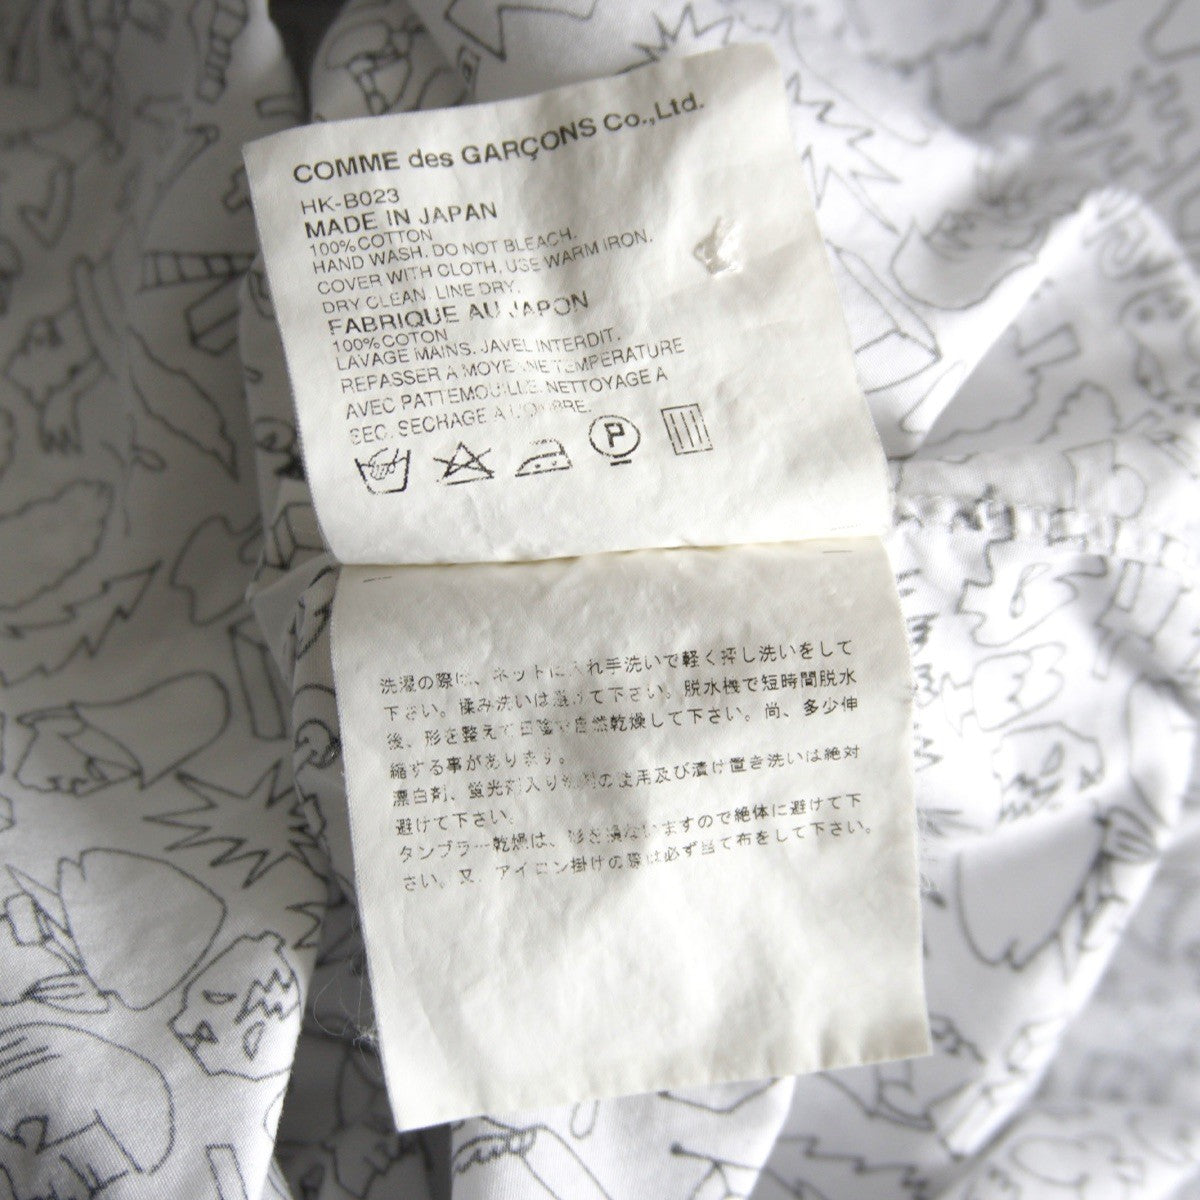 COMME des GARÇONS Co.,Ltd.
HK-B023
MADE IN JAPAN
100% COTTON
HAND WASH. DO NOT BLEACH.
COVER WITH CLOTH. USE WARM IRON.
DRY CLEAN. LINE DRY.
FABRIQUE AU JAPON
100% COTON
LAVAGE MAINS. JAVEL INTERDIT.
REPASSER A MOYENNE TEMPERATURE
AVEC PATTEMOUILLE. NETTOYAGE A
SEC. SECHAGE A L'OMBRE.
P
洗濯の際は、ネットに入れ手洗いで軽く押し洗いをして
下さい。揉み洗いは避けて下さい。脱水機で短時間脱水
後、形を整えて日陰で自然乾燥して下さい。尚、多少伸
縮する事があります。
漂白剤、蛍光剤入り洗剤の使用及び漬け置き洗いは絶対
避けて下さい。
タンブラー乾燥は、形を損ないますので絶体に避けて下
さい。又、アイロン掛けの際は必ず当て布をして下さい。